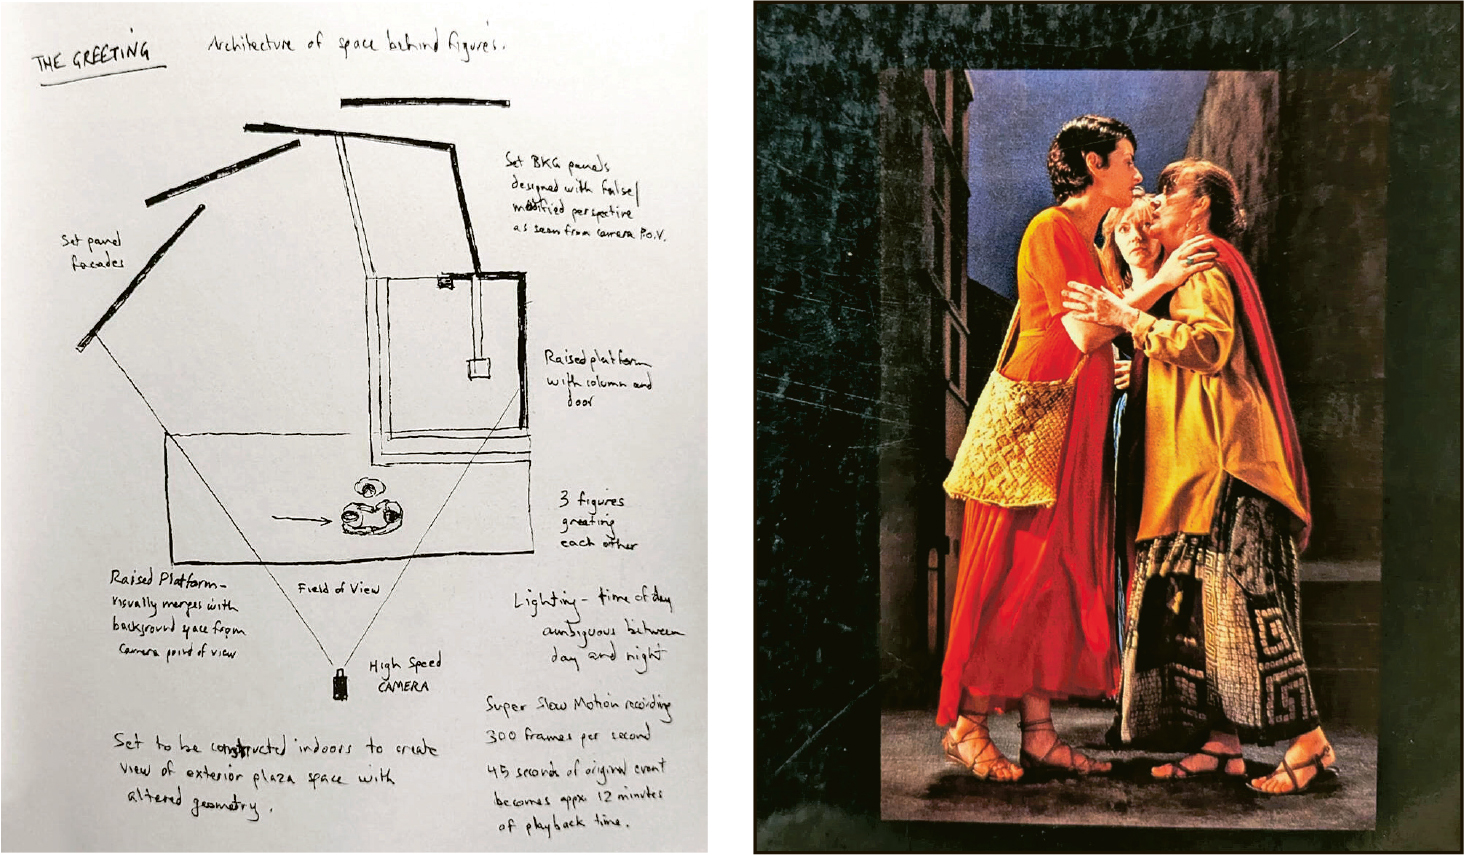 THE GREETING
Architecture of space behind figures.
Set BKG panels
designed with false/
modified perspective
as seen from camera P.O.V.
Set panel
facades
Raised platform
with column and
door
3 figures
greeting
each other
Raised Platform -
visually merges with
background space from
camera point of view
Field of View
High Speed
CAMERA
Lighting - time of day
ambiguous between
day and night
Super Slow Motion recording
300 frames per second
45 seconds of original event
becomes appx 12 minutes
of playback time.
Set to be constructed indoors to create
view of exterior plaza space with
altered geometry.